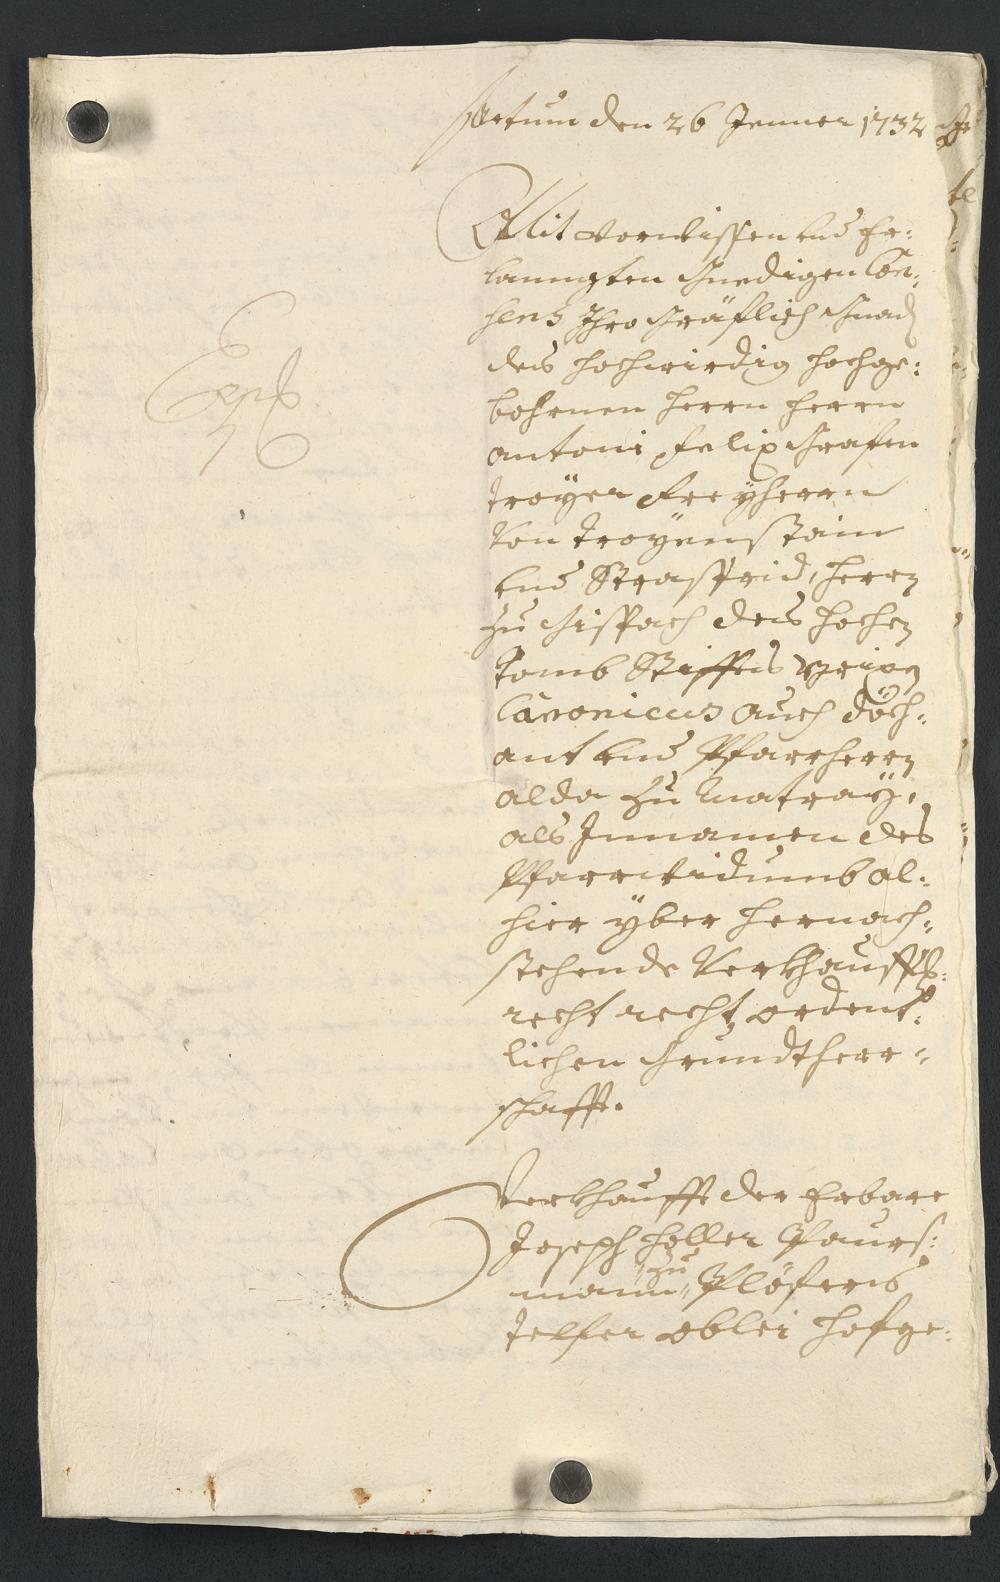 Actum den 26 Jenner 1732
Mit vorwissen und er:
lanngten Gnedigen Con:
sens Ihro Gräflich Gnad
des hochwirdig hochge:
bohrnen Herrn Herrn
Antoni Felix Grafen
Troyer Freyherrn
Von Troyenstain
und Strassfrid, Herrn
zu Gispach des hochen
Tomb Stiffts Brixn
Canonicus auch döch:
ant und Pfarrherrn
alda zu Matray,
als Innamen des
Pfarrwidumb al:
hier yber hernach:
stehende Verkhauffs:
recht recht ordent:
lichen Grundtherr:
schafft.
Verkhaufft der Erbare
Joseph Holler Paurs:
mann zu Plöfens
Telfer Oblei Hofge: